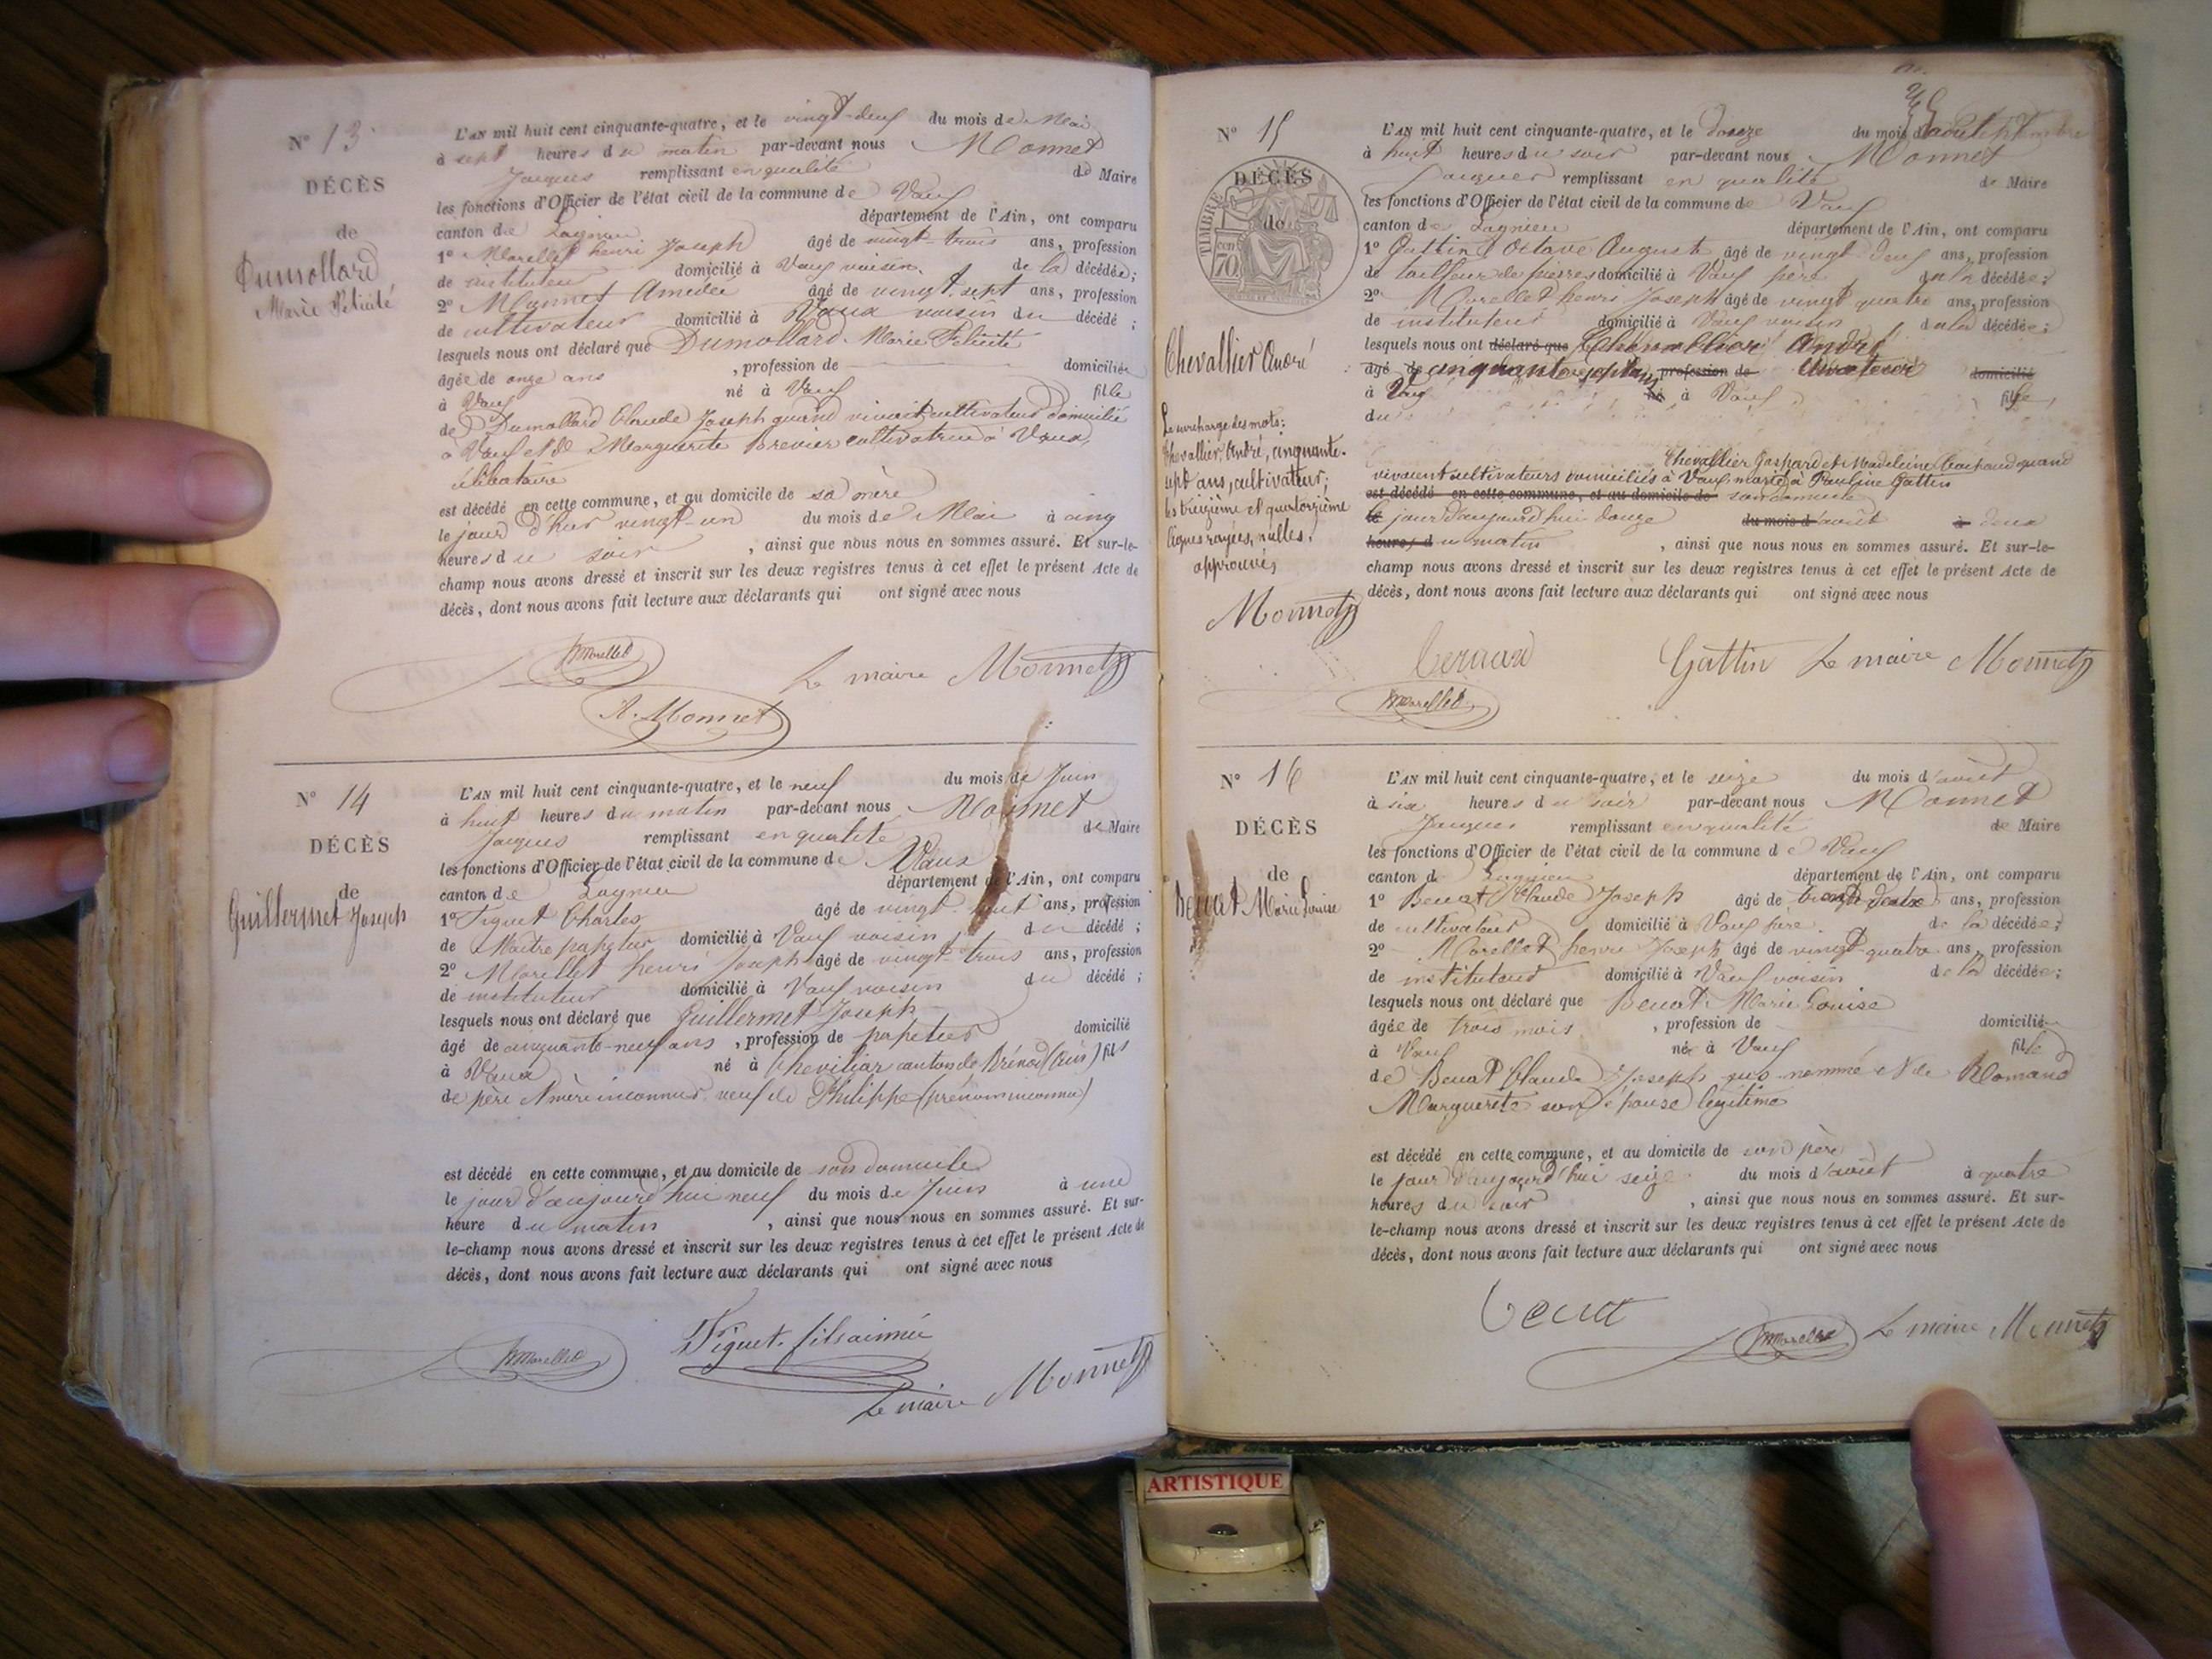 N° 13
DÉCÈS
de
Dumollard
Marie Félicité
L'AN mil huit cent cinquante-quatre, et le vingt-deux du mois de Mai
à sept heures du matin par-devant nous Monnet
Jacques remplissant en qualité de Maire
les fonctions d'Officier de l'état civil de la commune de Vaux
canton de Lagnieu département de l'Ain, ont comparu
1° Marellet henri Joseph âgé de vingt-trois ans, profession
de instituteur domicilié à Vaux voisin de la décédée;
2° Monnet Amedée âgé de vingt-sept ans, profession
de cultivateur domicilié à Vaux voisin du décédé ;
lesquels nous ont déclaré que Dumollard Marie Félicité
âgée de onze ans , profession de domiciliée
à Vaux né à Vaux fille
de Dumollard Claude Joseph quand vivait cultivateur domicilié
à Vaux et de Marguerite Brevier cultivatrice à Vaux,
célibataire
est décédé en cette commune, et au domicile de sa mère
le jour d'hier vingt-un du mois de Mai à cinq
heures du soir , ainsi que nous nous en sommes assuré. Et sur-le-
champ nous avons dressé et inscrit sur les deux registres tenus à cet effet le présent Acte de
décès, dont nous avons fait lecture aux déclarants qui ont signé avec nous
hMarellet
Le maire Monnet
A. Monnet
N° 14
DÉCÈS
de
Guillermet Joseph
L'AN mil huit cent cinquante-quatre, et le neuf du mois de Juin
à huit heures du matin par-devant nous Monnet
Jacques remplissant en qualité de Maire
les fonctions d'Officier de l'état civil de la commune de Vaux
canton de Lagnieu département de l'Ain, ont comparu
1° Figuet Charles âgé de vingt- ans, profession
de Maitre papetier domicilié à Vaux voisin du décédé ;
2° Marellet henri Joseph âgé de vingt-trois ans, profession
de instituteur domicilié à Vaux voisin du décédé ;
lesquels nous ont déclaré que Guillermet Joseph
âgé de cinquante-neuf ans , profession de papetier domicilié
à Vaux né à Cheviliar canton de Brénod (Ain) fils
de père et mère inconnus veuf de Philippe (prénom inconnu)
est décédé en cette commune, et au domicile de son domicile
le jour d'aujourd'hui neuf du mois de Juin à une
heure du matin , ainsi que nous nous en sommes assuré. Et sur-
le-champ nous avons dressé et inscrit sur les deux registres tenus à cet effet le présent Acte de
décès, dont nous avons fait lecture aux déclarants qui ont signé avec nous
hMarellet
Figuet fils ainé
Le maire Monnet
N° 15
DÉCÈS
de
TIMBRE
70
Chevallier André
La surcharge des mots:
Chevallier, André, cinquante-
sept ans, cultivateur;
les treizième et quatorzième
lignes rayées, nulles,
approuvés
Monnet
L'AN mil huit cent cinquante-quatre, et le douze du mois d'août
à huit heures du soir par-devant nous Monnet
Jacques remplissant en qualité de Maire
les fonctions d'Officier de l'état civil de la commune de Vaux
canton de Lagnieu département de l'Ain, ont comparu
1° Octave Auguste âgé de vingt deux ans, profession
de tailleur de pierres domicilié à Vaux père de la décédée;
2° Marellet henri Joseph âgé de vingt quatre ans, profession
de instituteur domicilié à Vaux voisin de la décédée;
lesquels nous ont déclaré que Chevallier André
âgé de cinquante sept ans, profession de domicilié
à Vaux né à Vaux fille
du
Chevallier Gaspard et Madeleine quand
vivaient cultivateurs domiciliés à Vaux, marié à Pauline Gattin
est décédé en cette commune, et au domicile de son domicile
le jour d'aujourd'hui douze du mois d'août à deux
heures du matin , ainsi que nous nous en sommes assuré. Et sur-le-
champ nous avons dressé et inscrit sur les deux registres tenus à cet effet le présent Acte de
décès, dont nous avons fait lecture aux déclarants qui ont signé avec nous
Bernard Gattin Le maire Monnet
hMarellet
N° 16
DÉCÈS
de
Benat Marie Louise
L'AN mil huit cent cinquante-quatre, et le seize du mois d'août
à six heures du soir par-devant nous Monnet
Jacques remplissant en qualité de Maire
les fonctions d'Officier de l'état civil de la commune de Vaux
canton de Lagnieu département de l'Ain, ont comparu
1° Benat Claude Joseph âgé de trente deux ans, profession
de cultivateur domicilié à Vaux père de la décédée;
2° Marellet henri Joseph âgé de vingt-quatre ans, profession
de instituteur domicilié à Vaux voisin de la décédée;
lesquels nous ont déclaré que Benat Marie Louise
âgée de trois mois , profession de domiciliée
à Vaux née à Vaux fille
de Benat Claude Joseph sus-nommé et de Romand
Marguerite son épouse légitime
est décédé en cette commune, et au domicile de son père
le jour d'aujourd'hui seize du mois d'août à quatre
heures du soir , ainsi que nous nous en sommes assuré. Et sur-
le-champ nous avons dressé et inscrit sur les deux registres tenus à cet effet le présent Acte de
décès, dont nous avons fait lecture aux déclarants qui ont signé avec nous
benat
hMarellet Le maire Monnet
ARTISTIQUE